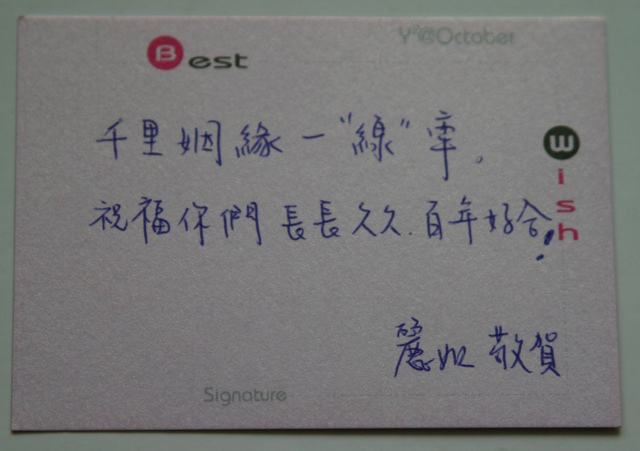 Best
Y²@October
千里姻緣一"線"牽,
祝福你們長長久久.百年好合!
Wish
麗如 敬賀
Signature